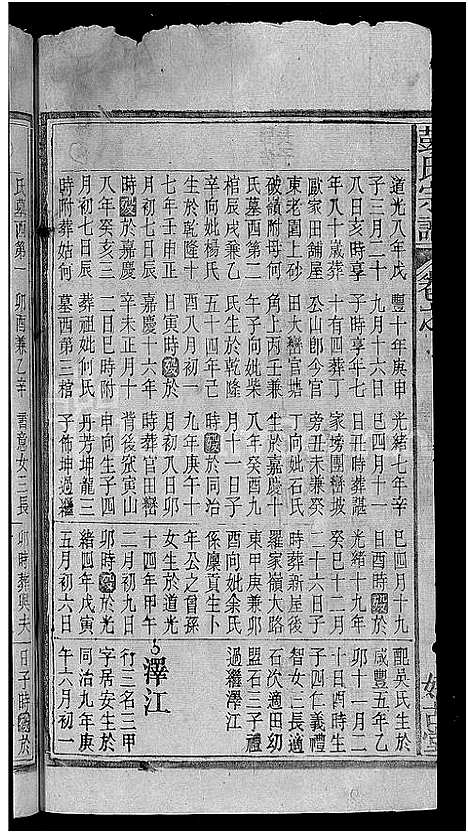 道光八年戊
子三月二十
八日亥時享
年八十歲葬
歐家田舖屋
東老園上砂
破嶺附母何
氏墓酉第二
棺辰戌兼乙
辛向妣楊氏
生於乾隆十
七年壬申正
月初七日辰
時歿於嘉慶
八年癸亥三
月初七日辰
時附葬姑何
豐十年庚申
九月十六日
子時享年七
十有四葬丁
公山郎今官
大巒官塘
角上丙壬兼
午子向妣柴
氏生於乾隆
五十四年己
酉八月初一
日寅時歿於
嘉慶十六年
辛未正月十
二日巳時附
葬祖妣何氏
墓西第三棺
光緒七年辛
巳四月十一
日丑時葬諶
家塝團巒坡
旁丑未兼癸
丁向妣石氏
生於嘉慶十
八年癸酉九
月十一日子
時歿於同治
九年庚午十
月初八日卯
時葬官田巒
背後寨寅山
申向生子四
丹芳坤龍三
子飾坤過繼
巳四月十九
日酉時歿於
光緒十九年
癸巳十二月
二十六日辰
時葬新屋後
羅家嶺大路
東甲庚兼卯
酉向妣余氏
係廩貢生卜
年公之曾孫
女生於道光
十四年甲午
二月初九日
卯時歿於光
緒四年戊寅
五月初六日
配吳氏生於
咸豐五年乙
卯十一月二
十日酉時生
子四仁義禮
智女二長適
石次適田幼
盟石三子禮
過繼澤江
澤江
行三名三甲
字居安生於
同治九年庚
午六月初一
氏墓酉第一
卯酉兼乙辛
書意女三長
卯時葬與夫
日子時歿於